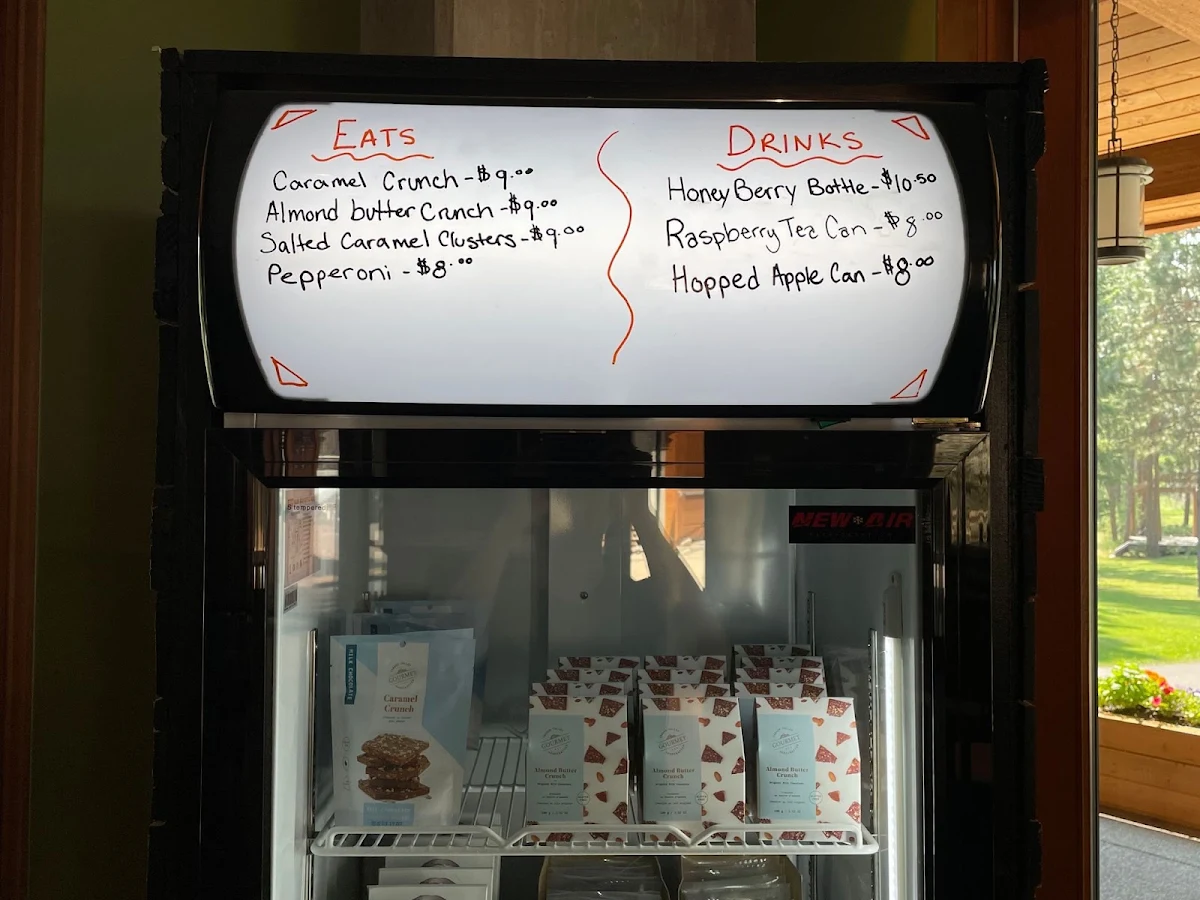 EATS
Caramel Crunch - $9.00
Almond butter Crunch - $9.00
Salted Caramel Clusters - $9.00
Pepperoni - $8.00
DRINKS
Honey Berry Bottle - $10.50
Raspberry Tea Can - $8.00
Hopped Apple Can - $8.00
tempered
NEW AIR
MILK CHOCOLATE
GOURMET
Caramel
Crunch
GOURMET
Almond Butter
Crunch
GOURMET
Almond Butter
Crunch
GOURMET
Almond Butter
Crunch